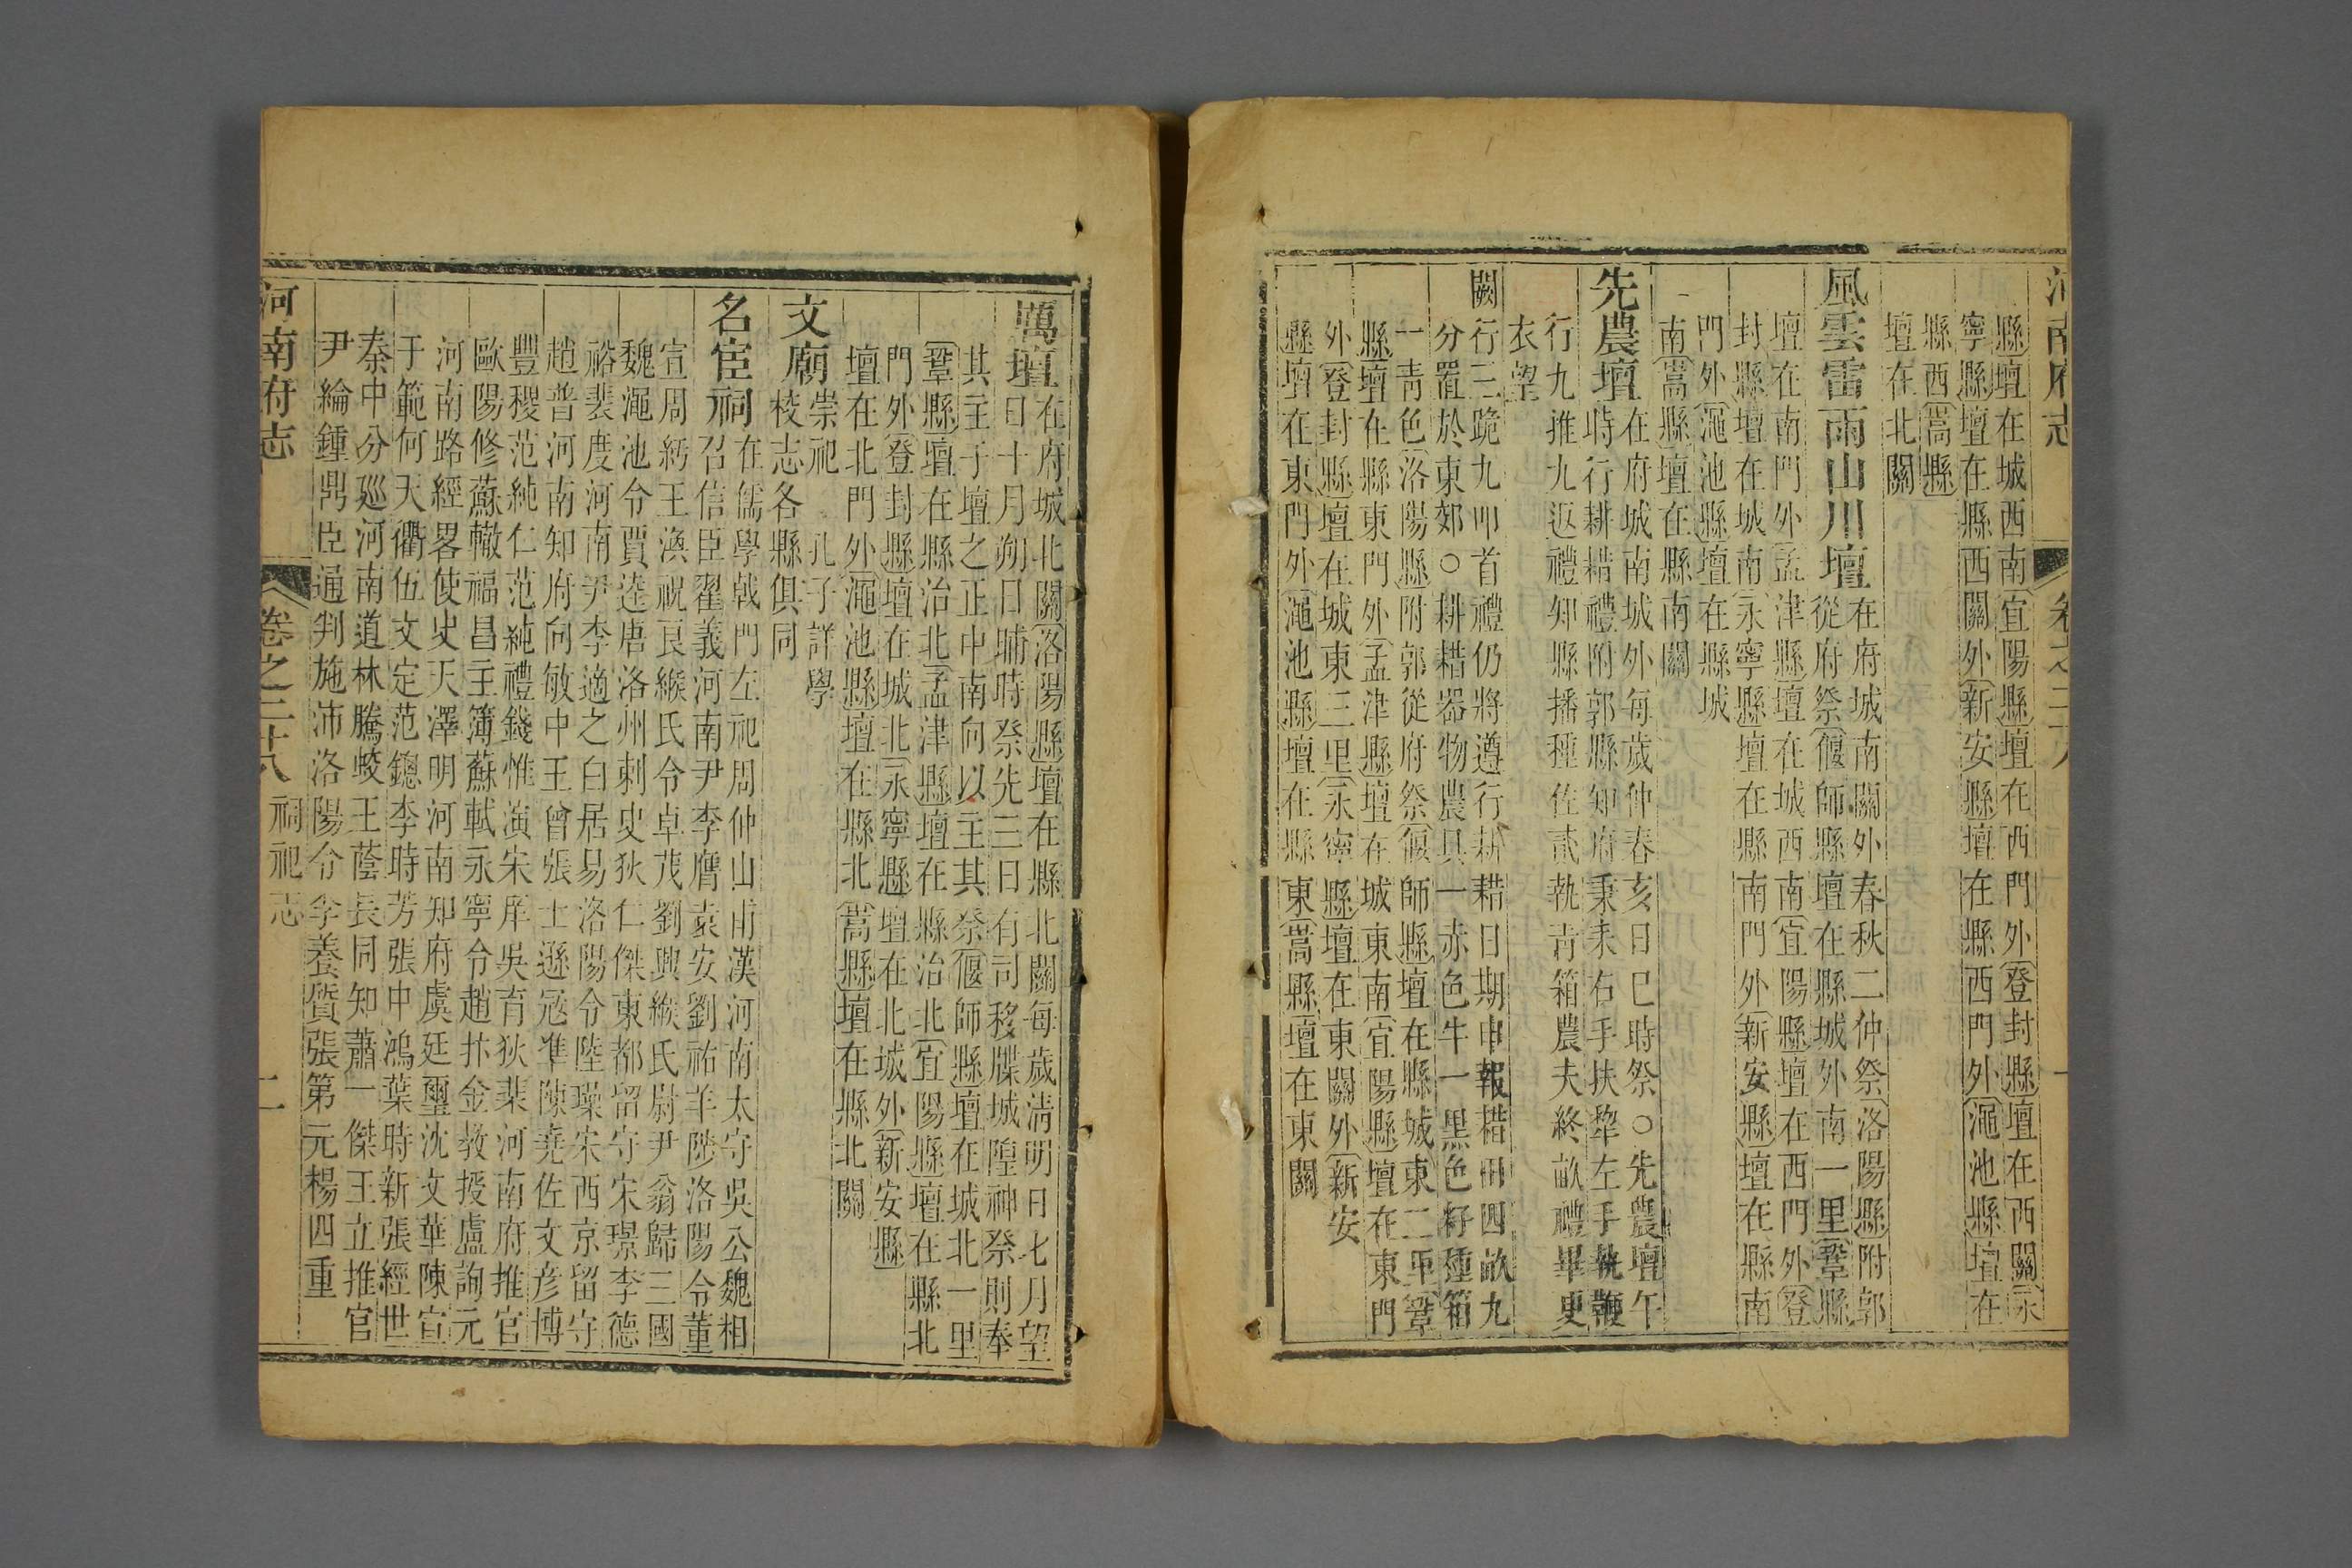 河南府志 卷之二十八
縣壇在城西南宜陽縣壇在西門外登封縣壇在西關永
寧縣壇在縣西關外新安縣壇在縣西門外澠池縣壇在
縣西嵩縣
壇在北關
風雲雷雨山川壇在府城南關外春秋二仲祭洛陽縣附郭
從府祭偃師縣壇在縣城外南一里鞏縣
壇在南門外孟津縣壇在城西南宜陽縣壇在西門外登
封縣壇在城南永寧縣壇在縣南門外新安縣壇在縣南
門外澠池縣壇在縣城
南嵩縣壇在縣南關
先農壇在府城南城外每歲仲春亥日巳時祭○先農壇午
時行耕耤禮附郭縣知府秉耒右手扶犂左手執鞭
行九推九返禮知縣播種佐貳執青箱農夫終畝禮畢更
衣望
闕行三跪九叩首禮仍將遵行耕耤日期申報耤田四畝九
分置於東郊○耕耤器物農具一赤色牛一黑色籽種箱
一青色洛陽縣附郭從府祭偃師縣壇在縣城東二里鞏
縣壇在縣東門外孟津縣壇在城東南宜陽縣壇在東門
外登封縣壇在城東三里永寧縣壇在東關外新安
縣壇在東門外澠池縣壇在縣東嵩縣壇在東關
厲壇在府城北關洛陽縣壇在縣北關每歲清明日七月望
日十月朔日晡時祭先三日有司移牒城隍神祭則奉
其主于壇之正中南向以主其祭偃師縣壇在城北一里
鞏縣壇在縣治北孟津縣壇在縣治北宜陽縣壇在縣北
門外登封縣壇在城北永寧縣壇在北城外新安縣
壇在北門外澠池縣壇在縣北嵩縣壇在縣北關
文廟崇祀 孔子詳學
校志各縣俱同
名宦祠在儒學戟門左祀周仲山甫漢河南太守吳公魏相
召信臣翟義河南尹李膺袁安劉祐羊陟洛陽令董
宣周紆王渙祝良緱氏令卓茂劉輿緱氏尉尹翁歸三國
魏澠池令賈逵唐洛州刺史狄仁傑東都留守宋璟李德
裕裴度河南尹李適之白居易洛陽令陸璪宋西京留守
趙普河南知府向敏中王曾張士遜冦凖陳堯佐文彥博
豐稷范純仁范純禮錢惟演宋庠吳育狄棐河南府推官
歐陽修蘇轍福昌主簿蘇軾永寧令趙抃金教授盧詢元
河南路經畧使史天澤明河南知府虞廷璽沈文華陳宣
于範何天衢伍文定范鏓李時芳張中鴻葉時新張經世
秦中分巡河南道林騰蛟王蔭長同知蕭一傑王立推官
尹綸鍾鼎臣通判施沛洛陽令李養質張第元楊四重
河南府志 卷之二十八 祠祀志 二